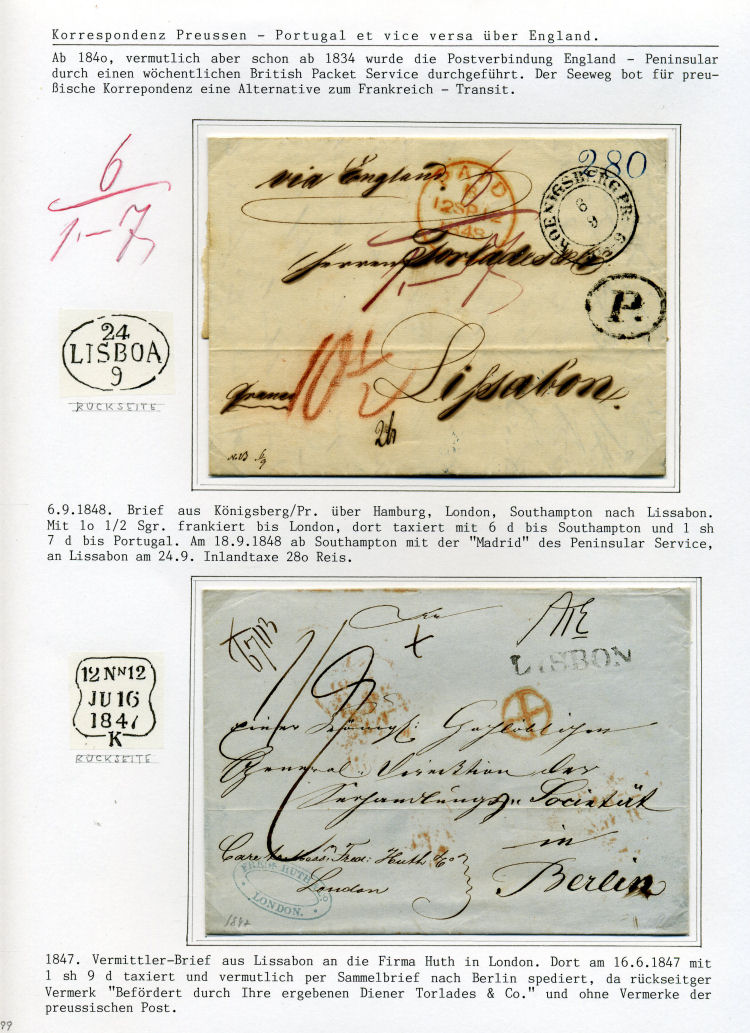 Korrespondenz Preussen - Portugal et vice versa über England.
Ab 184o, vermutlich aber schon ab 1834 wurde die Postverbindung England - Peninsular
durch einen wöchentlichen British Packet Service durchgeführt. Der Seeweg bot für preu-
ßische Korrepondenz eine Alternative zum Frankreich - Transit.
6
1,-7
24
LISBOA
9
RÜCKSEITE
via England
PAID
12SP12
1848
280
KOENIGSBERG PR:
6 9
Herren Torlades & Co
1,-7
P.
10 1/2
franco
Lissabon.
6.9.1848. Brief aus Königsberg/Pr. über Hamburg, London, Southampton nach Lissabon.
Mit 1o 1/2 Sgr. frankiert bis London, dort taxiert mit 6 d bis Southampton und 1 sh
7 d bis Portugal. Am 18.9.1848 ab Southampton mit der "Madrid" des Peninsular Service,
an Lissabon am 24.9. Inlandtaxe 28o Reis.
12 NN 12
JU 16
1847
K
RÜCKSEITE
LISBON
einer Königl: Hochlöblichen
General-Direktion der
Seehandlungs-Societät
in
Berlin
Care of Mess: Fred: Huth & Co
London
FREDK HUTH & CO
LONDON.
1847
1847. Vermittler-Brief aus Lissabon an die Firma Huth in London. Dort am 16.6.1847 mit
1 sh 9 d taxiert und vermutlich per Sammelbrief nach Berlin spediert, da rückseitger
Vermerk "Befördert durch Ihre ergebenen Diener Torlades & Co." und ohne Vermerke der
preussischen Post.
99